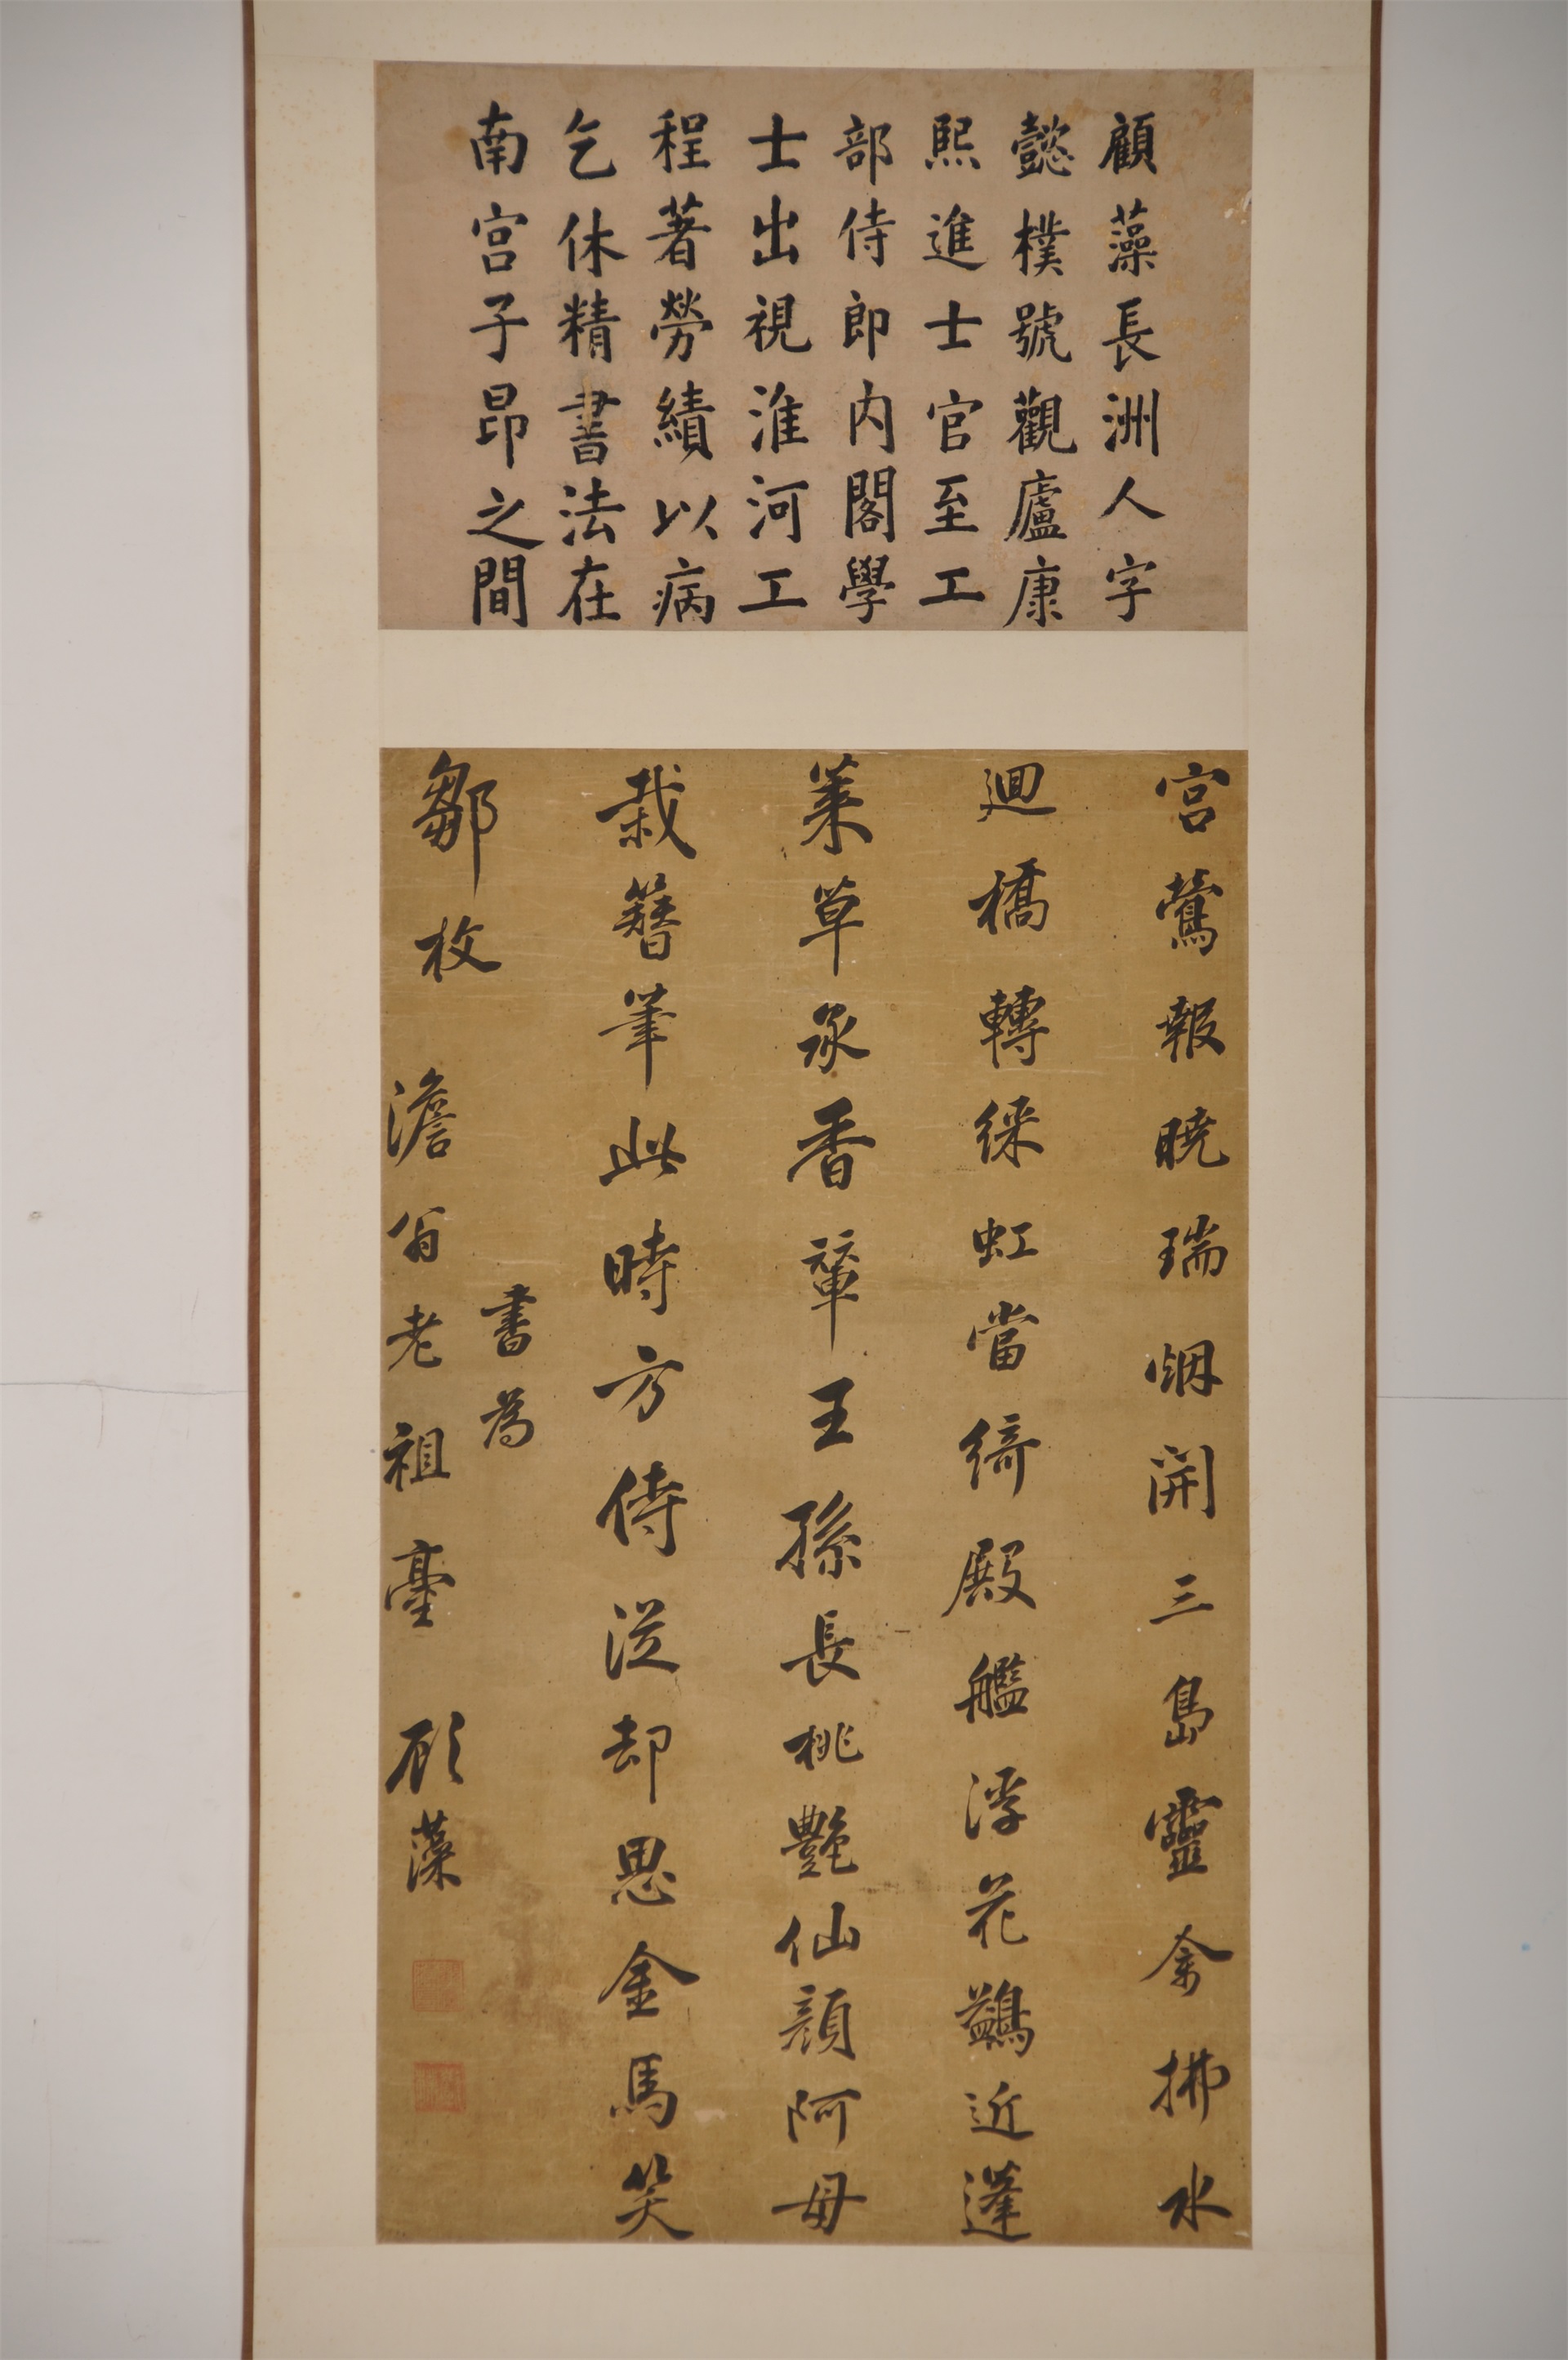 顧藻長洲人字
懿樸號觀廬康
熙進士官至工
部侍郎内閣學
士出視淮河工
程著勞績以病
乞休精書法在
南宫子昂之間
宫鶯報曉瑞烟開三島靈禽拂水
迴橋轉綵虹當綺殿艦浮花鷁近蓬
萊草承香輦王孫長桃艷仙顔阿母
栽簪筆此時方侍從却思金馬笑
鄒枚
書為
澹翁老祖臺
顧藻